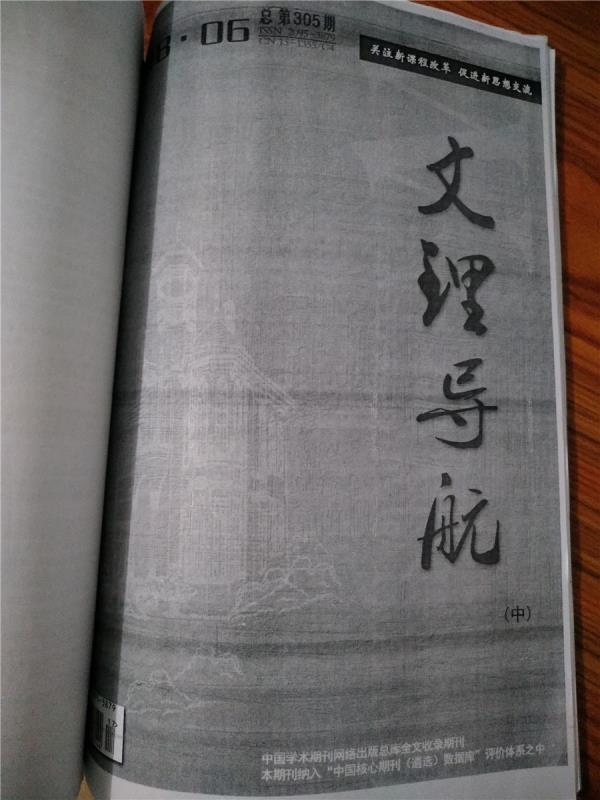 8·06
总第305期
ISSN 2095-3879
CN13-1355/G4
关注新课程改革 促进新思想交流
文理导航
(中)
17>
中国学术期刊网络出版总库全文收录期刊
本期刊纳入“中国核心期刊（遴选）数据库”评价体系之中